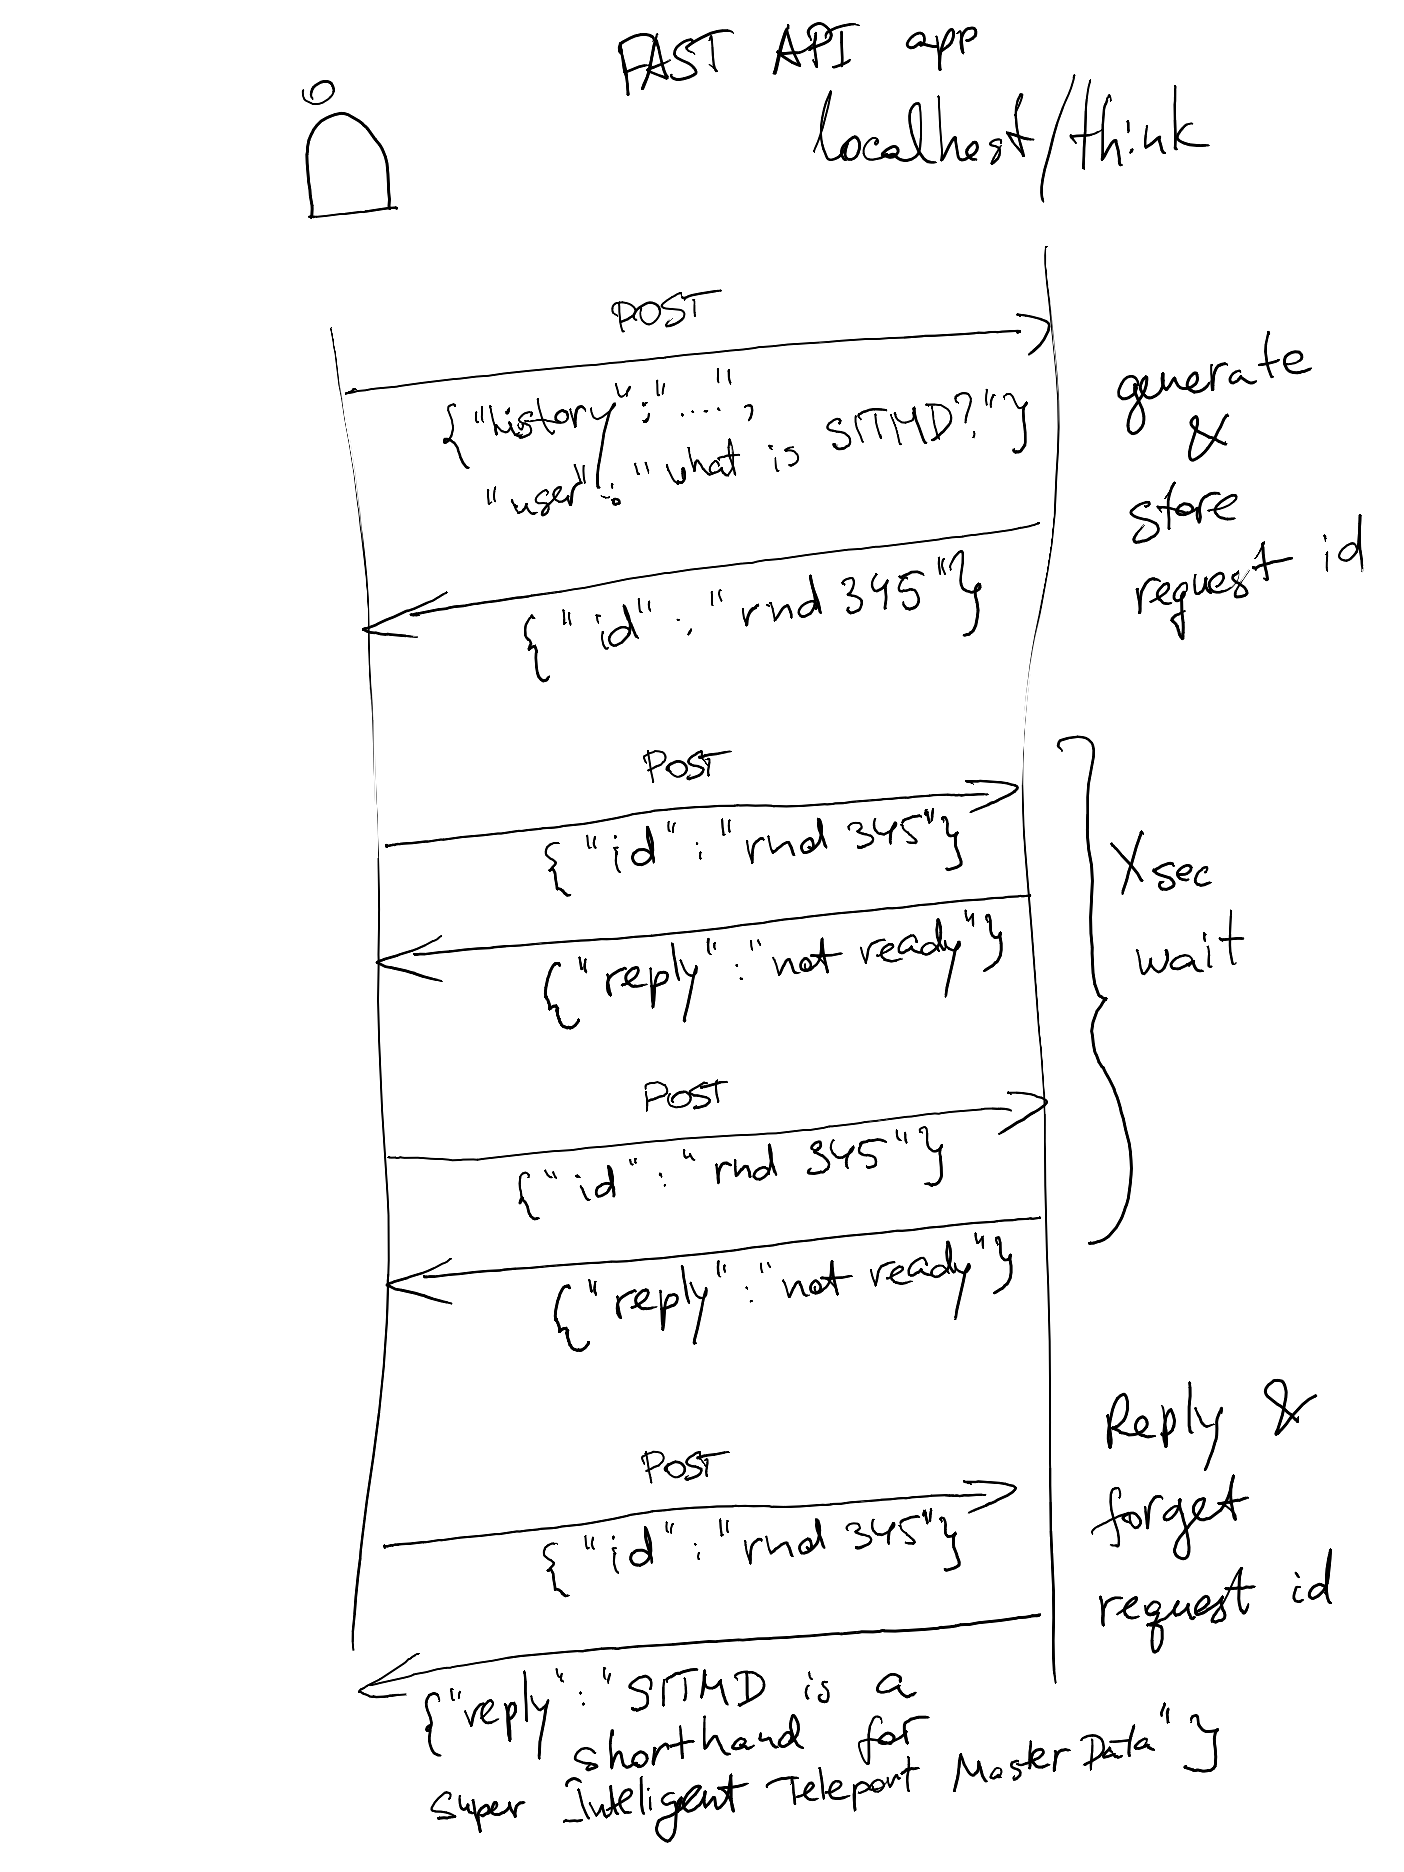 FAST API app
localhost/think
POST
{"history":"....",
"user":"what is SITMD?"}
generate
&
store
request id
{"id":"rnd 345"}
POST
{"id":"rnd 345"}
{"reply":"not ready"}
X sec
wait
POST
{"id":"rnd 345"}
{"reply":"not ready"}
POST
{"id":"rnd 345"}
Reply &
forget
request id
{"reply":"SITMD is a
shorthand for
Super Inteligent Teleport Master Data"}